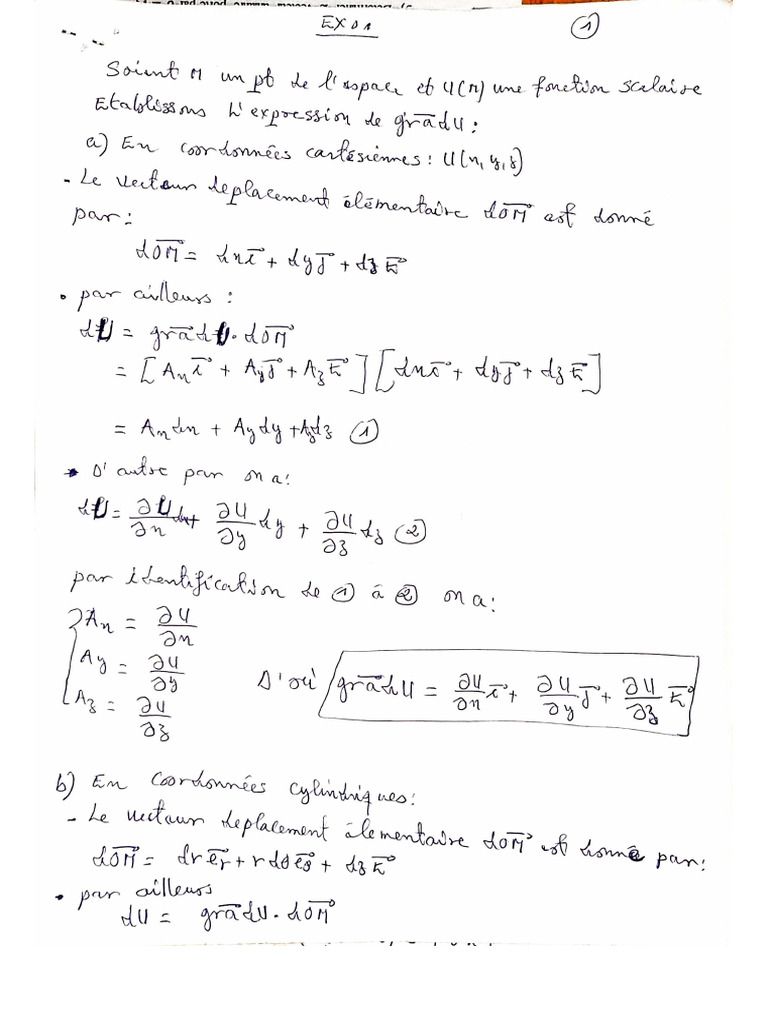 EXO1
①
Soient M un pt de l'espace et U(M) une fonction scalaire
Etablissons l'expression de grad⃗U :
a) En coordonnées cartésiennes : U(x, y, z)
- Le vecteur deplacement élémentaire dOM⃗ est donné
par :
dOM⃗ = dx i⃗ + dy j⃗ + dz k⃗
• par ailleurs :
dU = grad⃗U · dOM⃗
= [Ax i⃗ + Ay j⃗ + Az k⃗] [dx i⃗ + dy j⃗ + dz k⃗]
= Ax dx + Ay dy + Az dz ①
• D'autre par on a :
dU = ∂U/∂x dx + ∂U/∂y dy + ∂U/∂z dz ②
par identification de ① à ② on a :
{ Ax = ∂U/∂x
Ay = ∂U/∂y
Az = ∂U/∂z
D'où grad⃗U = ∂U/∂x i⃗ + ∂U/∂y j⃗ + ∂U/∂z k⃗
b) En coordonnées cylindriques :
- Le vecteur deplacement élementaire dOM⃗ est donné par :
dOM⃗ = dr e⃗r + rdθ e⃗θ + dz k⃗
• par ailleurs
dU = grad⃗U · dOM⃗